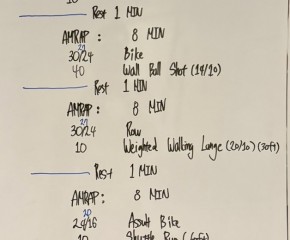 Rest 1 MIN
AMRAP: 8 MIN
27
30/24 Bike
40 Wall Ball Shot (14/10)
Rest 1 MIN
AMRAP: 8 MIN
27
30/24 Row
10 Weighted Walking Lunge (20/10) (30ft)
Rest 1 MIN
AMRAP: 8 MIN
20
24/16 Assult Bike
10 Shuttle Run